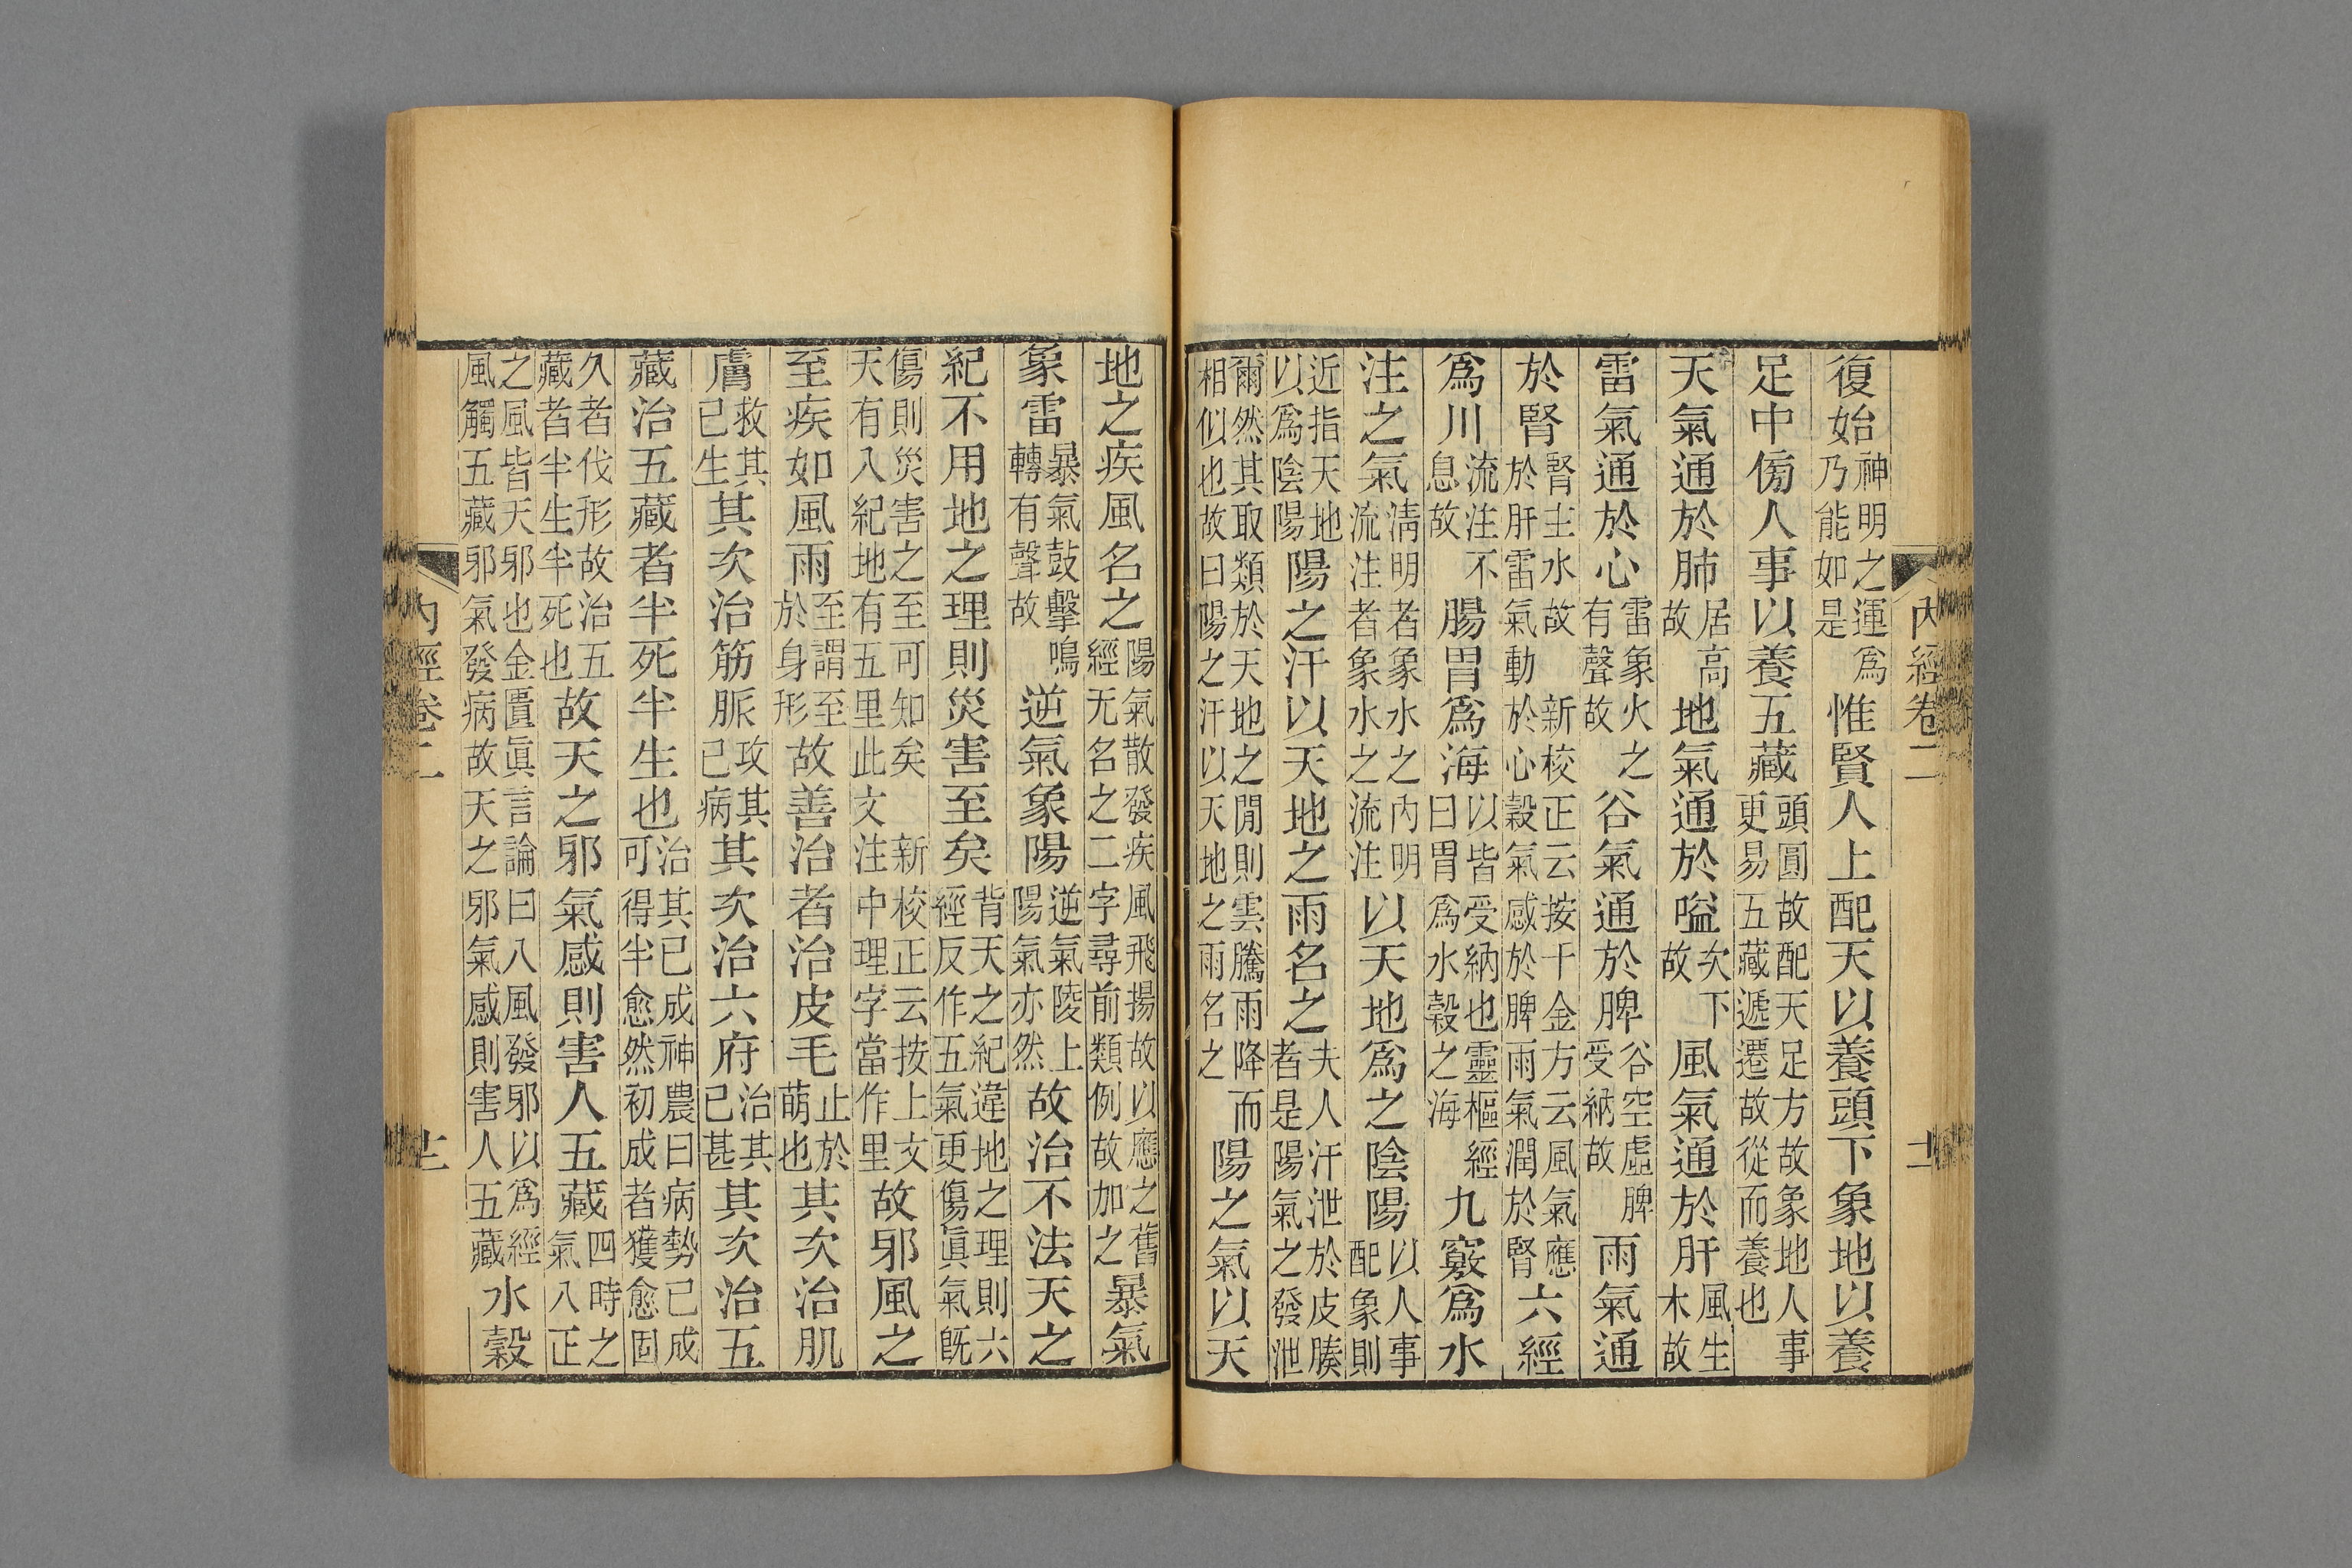 內經卷二
復始神明之運爲乃能如是惟賢人上配天以養頭下象地以養
足中傍人事以養五藏頭圓故配天足方故象地人事更易五藏遞遷故從而養也
天氣通於肺居高故地氣通於嗌次下故風氣通於肝風生木故
雷氣通於心雷象火之有聲故谷氣通於脾谷空虛脾受納故雨氣通
於腎腎主水故 新校正云按千金方云風氣應於肝雷氣動於心穀氣感於脾雨氣潤於腎六經
爲川流注不息故腸胃爲海以皆受納也靈樞經曰胃爲水穀之海九竅爲水
注之氣清明者象水之内明流注者象水之流注以天地爲之陰陽以人事配象則
近指天地以爲陰陽陽之汗以天地之雨名之夫人汗泄於皮腠者是陽氣之發泄
爾然其取類於天地之閒則雲騰雨降而相似也故曰陽之汗以天地之雨名之陽之氣以天
地之疾風名之陽氣散發疾風飛揚故以應之舊經无名之二字尋前類例故加之暴氣
象雷暴氣鼓擊鳴轉有聲故逆氣象陽逆氣陵上陽氣亦然故治不法天之
紀不用地之理則災害至矣背天之紀違地之理則六經反作五氣更傷眞氣既
傷則災害之至可知矣 新校正云按上文天有八紀地有五里此文注中理字當作里故邪風之
至疾如風雨至謂至於身形故善治者治皮毛止於萌也其次治肌
膚救其已生其次治筋脈攻其已病其次治六府治其已甚其次治五
藏治五藏者半死半生也治其已成神農曰病勢已成可得半愈然初成者獲愈固
久者伐形故治五藏者半生半死也故天之邪氣感則害人五藏四時之氣八正
之風皆天邪也金匱眞言論曰八風發邪以爲經風觸五藏邪氣發病故天之邪氣感則害人五藏水穀
內經卷二